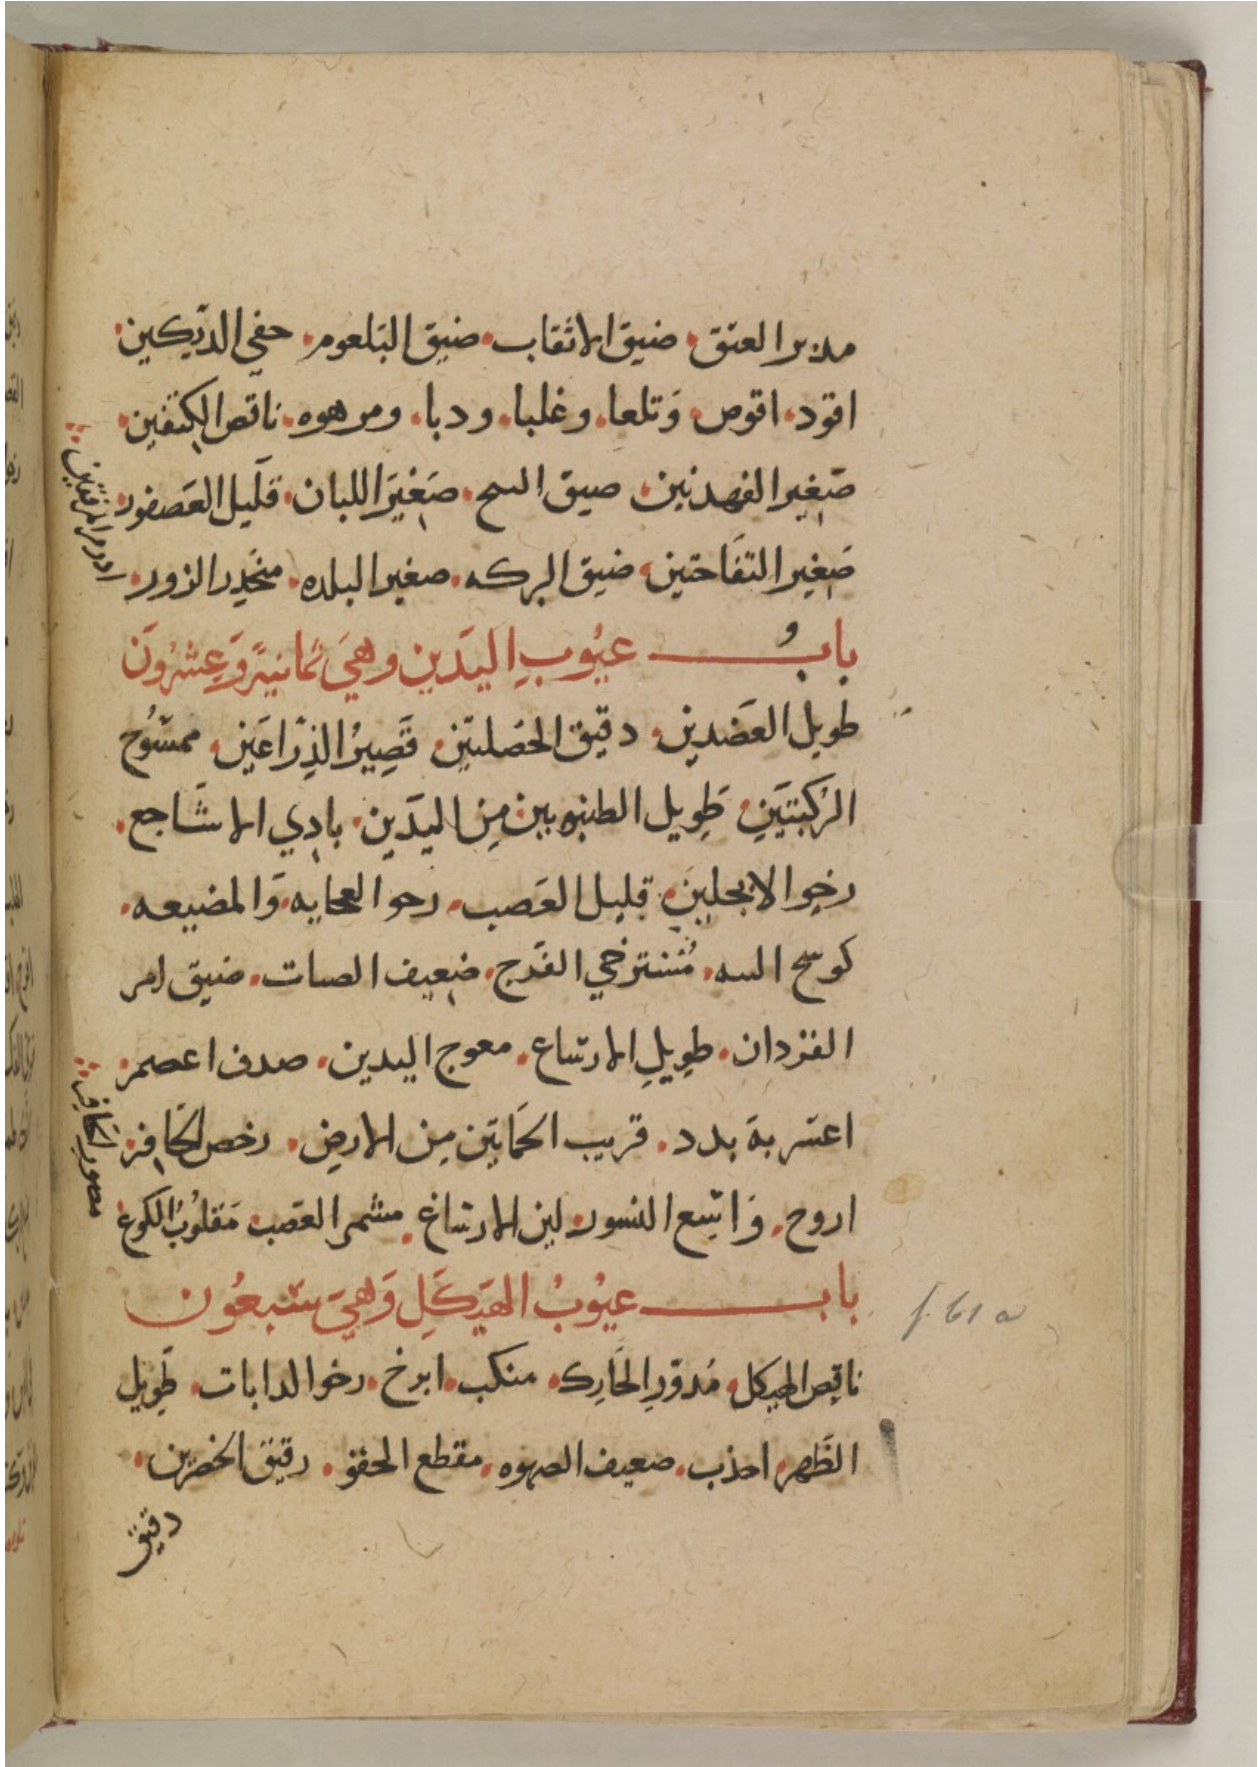 مدبر العنق ضيق الاثقاب ضيق البلعوم خفي الديكين
اقود اقوص وتلعا وغلبا ودبا ومرهوه ناقص الكتفين
صغير الفهدتين ضيق صغير اللبان قليل العصفور
صغير التفاحتين ضيق البركه صغير البلده منحدر الزور
باب عيوب اليدين وهي ثمانية وعشرون
طويل العضدين دقيق الخصلتين قصير الذراعين ممسوح
الركبتين طويل الطنبوبين من اليدين بادي الاشاجع
رخو الابجلين قليل العصب رحو العجايه والمضيعه
كوسح مسترخي الفرج ضعيف ضيق امر
القردان طويل الارساع معوج اليدين صدف اعصم
اعسر بة بدد قريب الحماتين من الارض رخص الحافر
اروح واسع النسور لين الارساغ مشمر العصب مقلوب الكوع
باب عيوب الهيكل وهي سبعون
ناقص الهيكل مدور الحارك منكب ابزخ رخو الدابات طويل
الظهر احدب ضعيف الصهوه مقطع الحقو رقيق الخصرين
دقيق
المرفقين
الحافر
f. 61 a